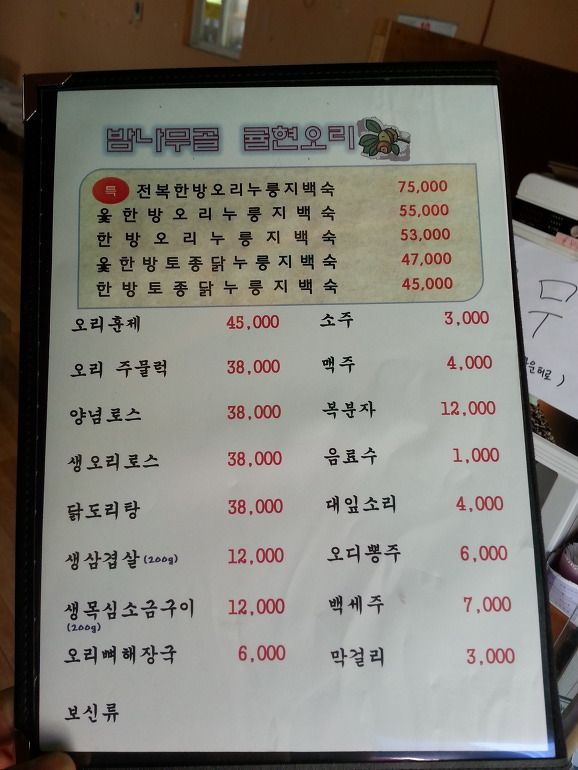 밤나무골 굴현오리
특 전복한방오리누룽지백숙 75,000
옻한방오리누룽지백숙 55,000
한방오리누룽지백숙 53,000
옻한방토종닭누룽지백숙 47,000
한방토종닭누룽지백숙 45,000
오리훈제 45,000 소주 3,000
오리 주물럭 38,000 맥주 4,000
양념로스 38,000 복분자 12,000
생오리로스 38,000 음료수 1,000
닭도리탕 38,000 대잎소리 4,000
생삼겹살 (200g) 12,000 오디뽕주 6,000
생목심소금구이 12,000 백세주 7,000
(200g)
오리뼈해장국 6,000 막걸리 3,000
보신류